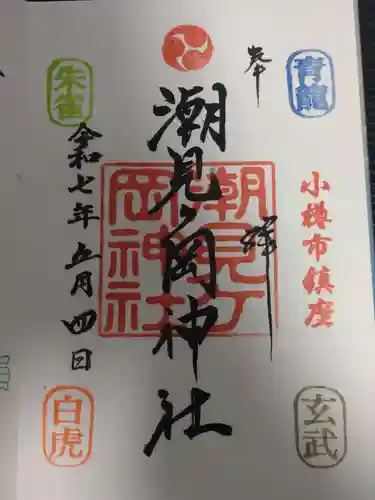 奉拝
青龍
小樽市鎮座
玄武
潮見ヶ岡神社
潮見ケ
岡神社
朱雀
令和七年五月四日
白虎